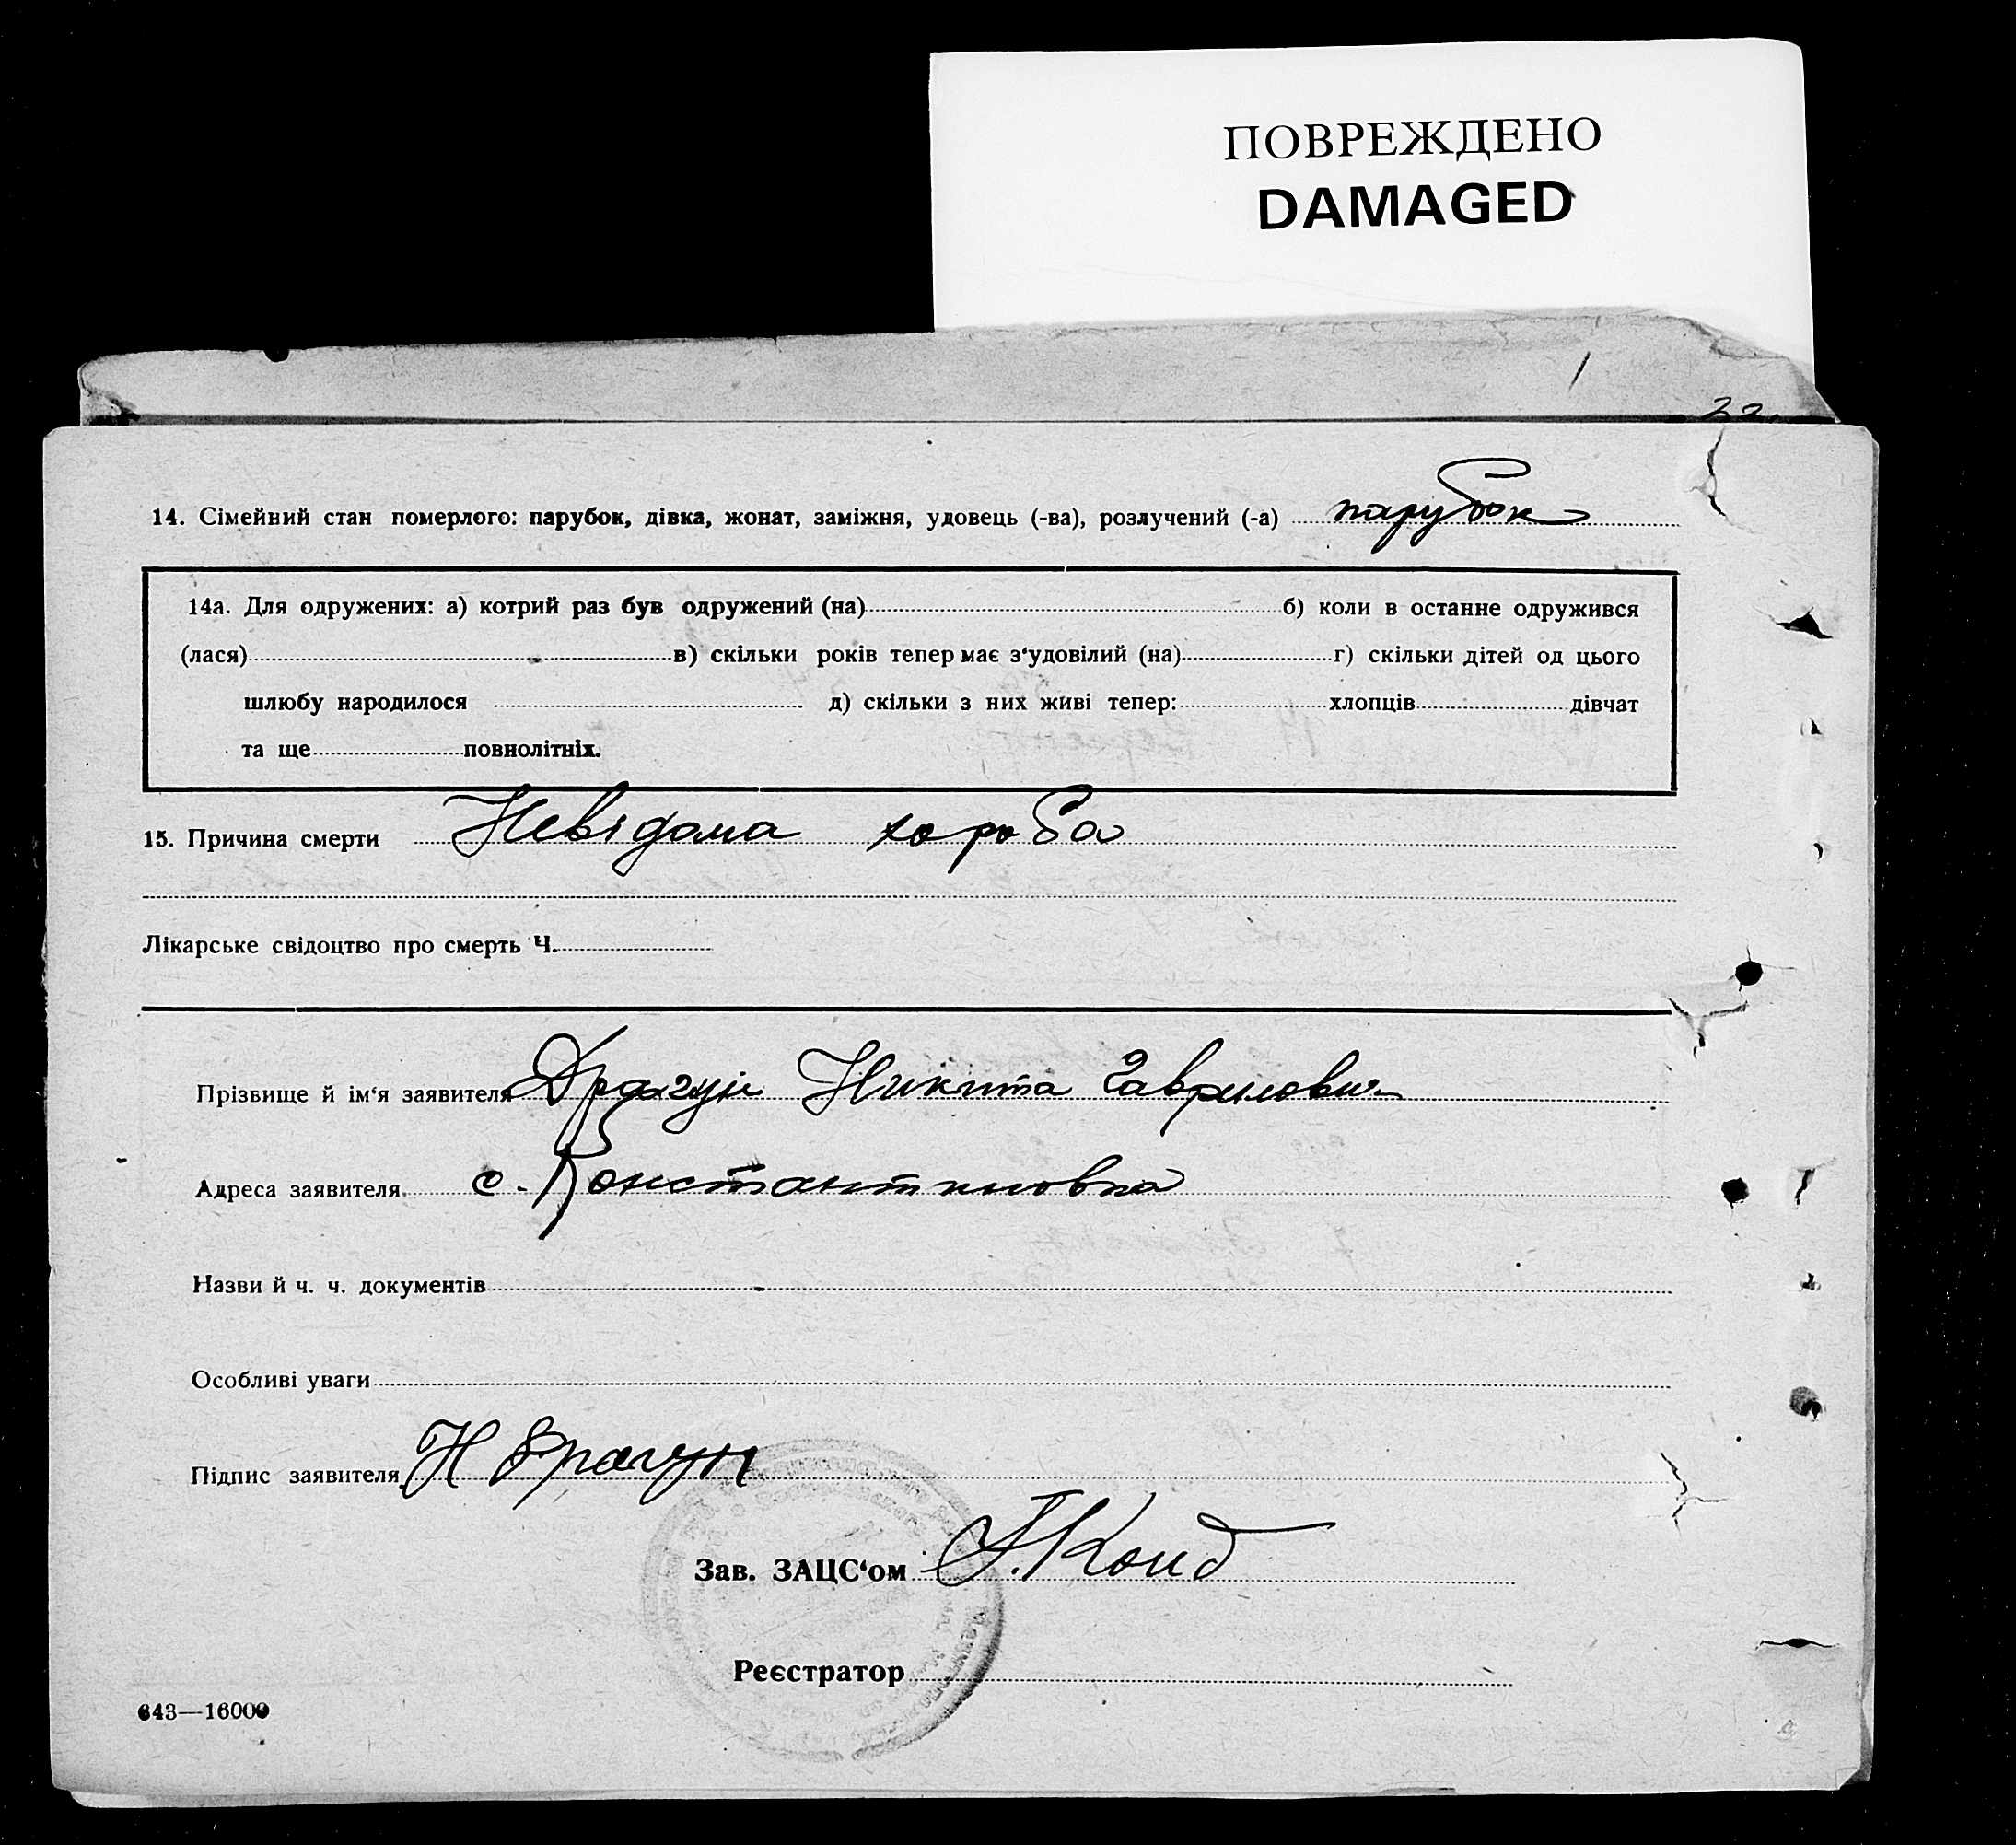 ПОВРЕЖДЕНО
DAMAGED
14. Сімейний стан померлого: парубок, дівка, жонат, заміжня, удовець (-ва), розлучений (-а) парубок
14а. Для одружених: а) котрий раз був одружений (на) б) коли в останне одружився
(лася) в) скільки років тепер має з‘удовілий (на) г) скільки дітей од цього
шлюбу народилося д) скільки з них живі тепер: хлопців дівчат
та ще повнолітніх.
15. Причина смерти Невідома хороба
Лікарське свідоцтво про смерть Ч.
Прізвище й ім‘я заявителя Драгун Никита Гаврилович
Адреса заявителя с. Константиновка
Назви й ч. ч. документів
Особливі уваги
Підпис заявителя Н Драгун
Зав. ЗАЦС‘ом
Реєстратор
643—16000